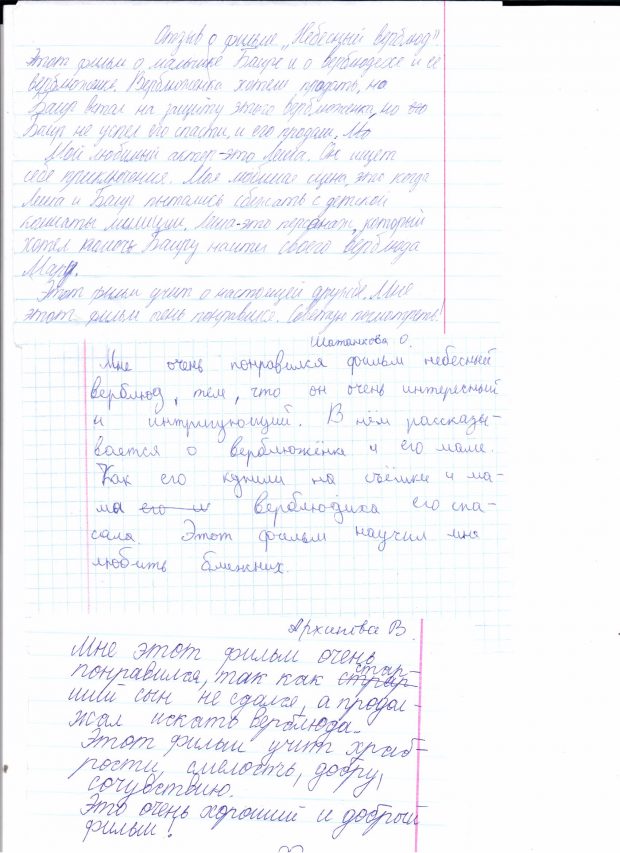 Отзыв о фильме „Небесный верблюд".
Этот фильм о мальчике Баире и о верблюдехе и её
верблюжонке. Верблюжонка хотели продать, но
Баир встал на защиту этого верблюжонка, но
Баир не успел его спасти и его продали.
Мой любимый актёр-это Лёша. Он ищет
себе приключения. Моя любимая сцена, это когда
Лёша и Баир пытались сбежать с детской
комнаты милиции. Лёша-это персонаж, который
хотел помочь Баиру найти своего верблюда
Мару.
Этот фильм учит о настоящей дружбе. Мне
этот фильм очень понравился. Советую посмотреть!
Шатанкова О.
Мне очень понравился фильм небесный
верблюд, тем, что он очень интересный
и интригующий. В нём рассказы-
вается о верблюжёнке и его маме.
Как его купили на съёмки и ма-
ма его и верблюдиха его спа-
сала. Этот фильм научил меня
любить ближних.
Архипова В.
Мне этот фильм очень
понравился, так как стар-
ший сын не сдался, а продол-
жал искать верблюда.
Этот фильм учит храб-
рости, смелость, добру,
сочувствию.
Это очень хороший и добрый
фильм!